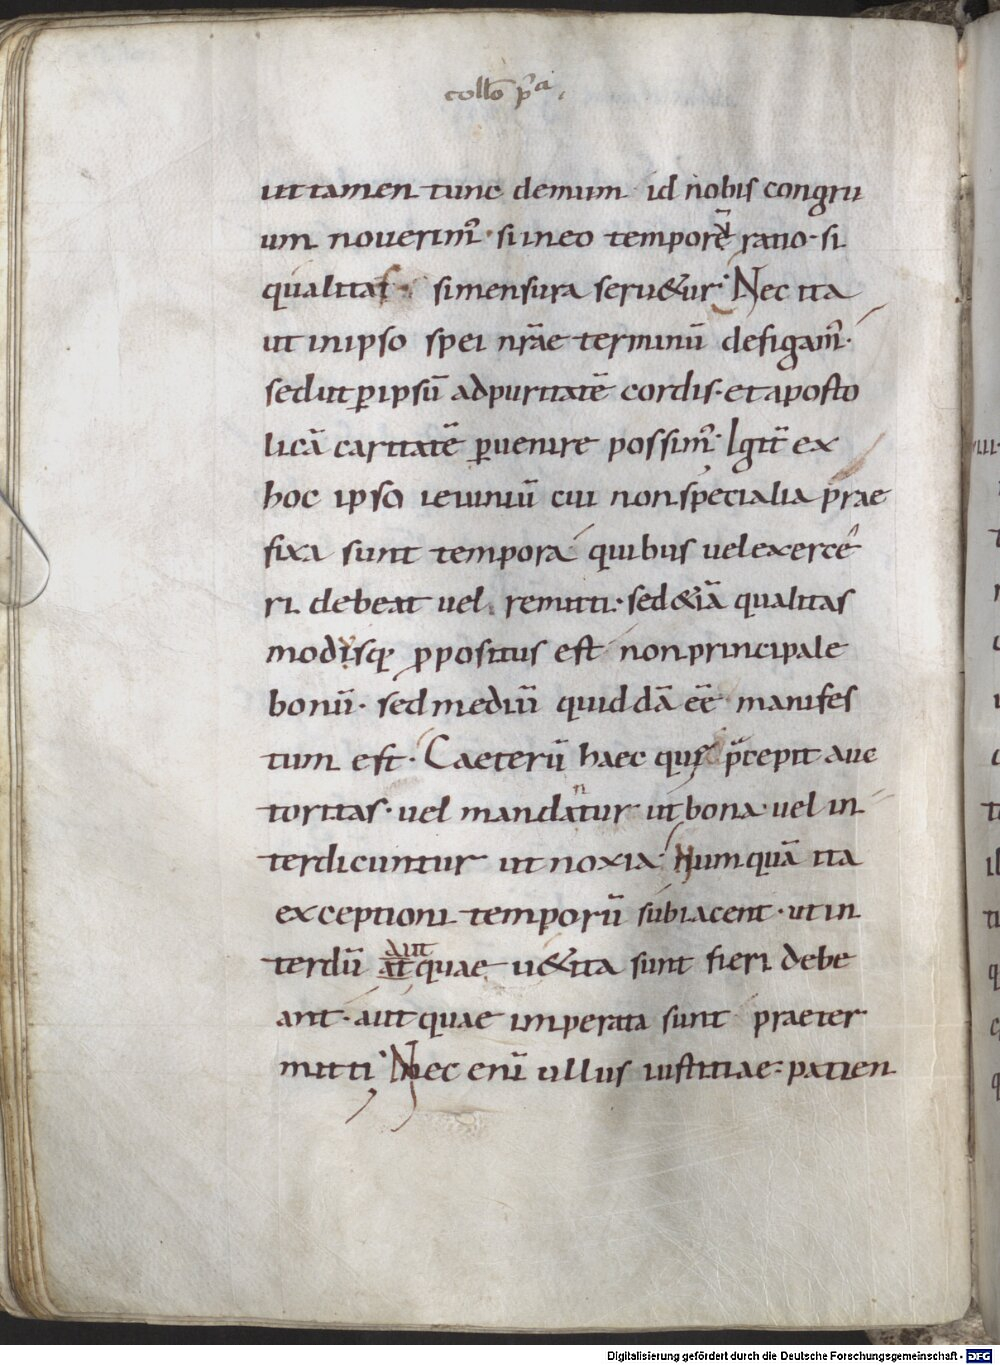 collo̅ p̅a̅.
ut tamen tunc demum id nobis congru
um nouerim᾽· si in eo tempore ratio· si
qualitas· si mensura seru&ur· Nec ita
ut in ipso spei nr̅ae terminu̅ defigam᾽·
sed ut p̲ ipsu̅ ad puritate̅ cordis· et aposto
lica̅ caritate̅ p̲uenire possim᾽· Igit̅ ex
hoc ipso ieiuniu̅ cui non specialia prae
fixa sunt tempora quibus uel exerce
ri debeat uel remitti· sed &ia̅ qualitas
modisq; p̲positus est non principale
bonu̅· sed mediu̅ quidda̅ e̅e̅ manifes
tum est· Caeteru̅ haec quę p̅cepti auc
toritas· uel mandantur ut bona· uel in
terdicuntur ut noxia· numqua̅ ita
exceptioni temporu̅ subiacent· ut in
terdu̅ aut quae u&ita sunt fieri debe
ant· aut quae imperata sunt praeter
mitti· Nec eni̅ ullus iustitiae· patien
Digitalisierung gefördert durch die Deutsche Forschungsgemeinschaft - DFG